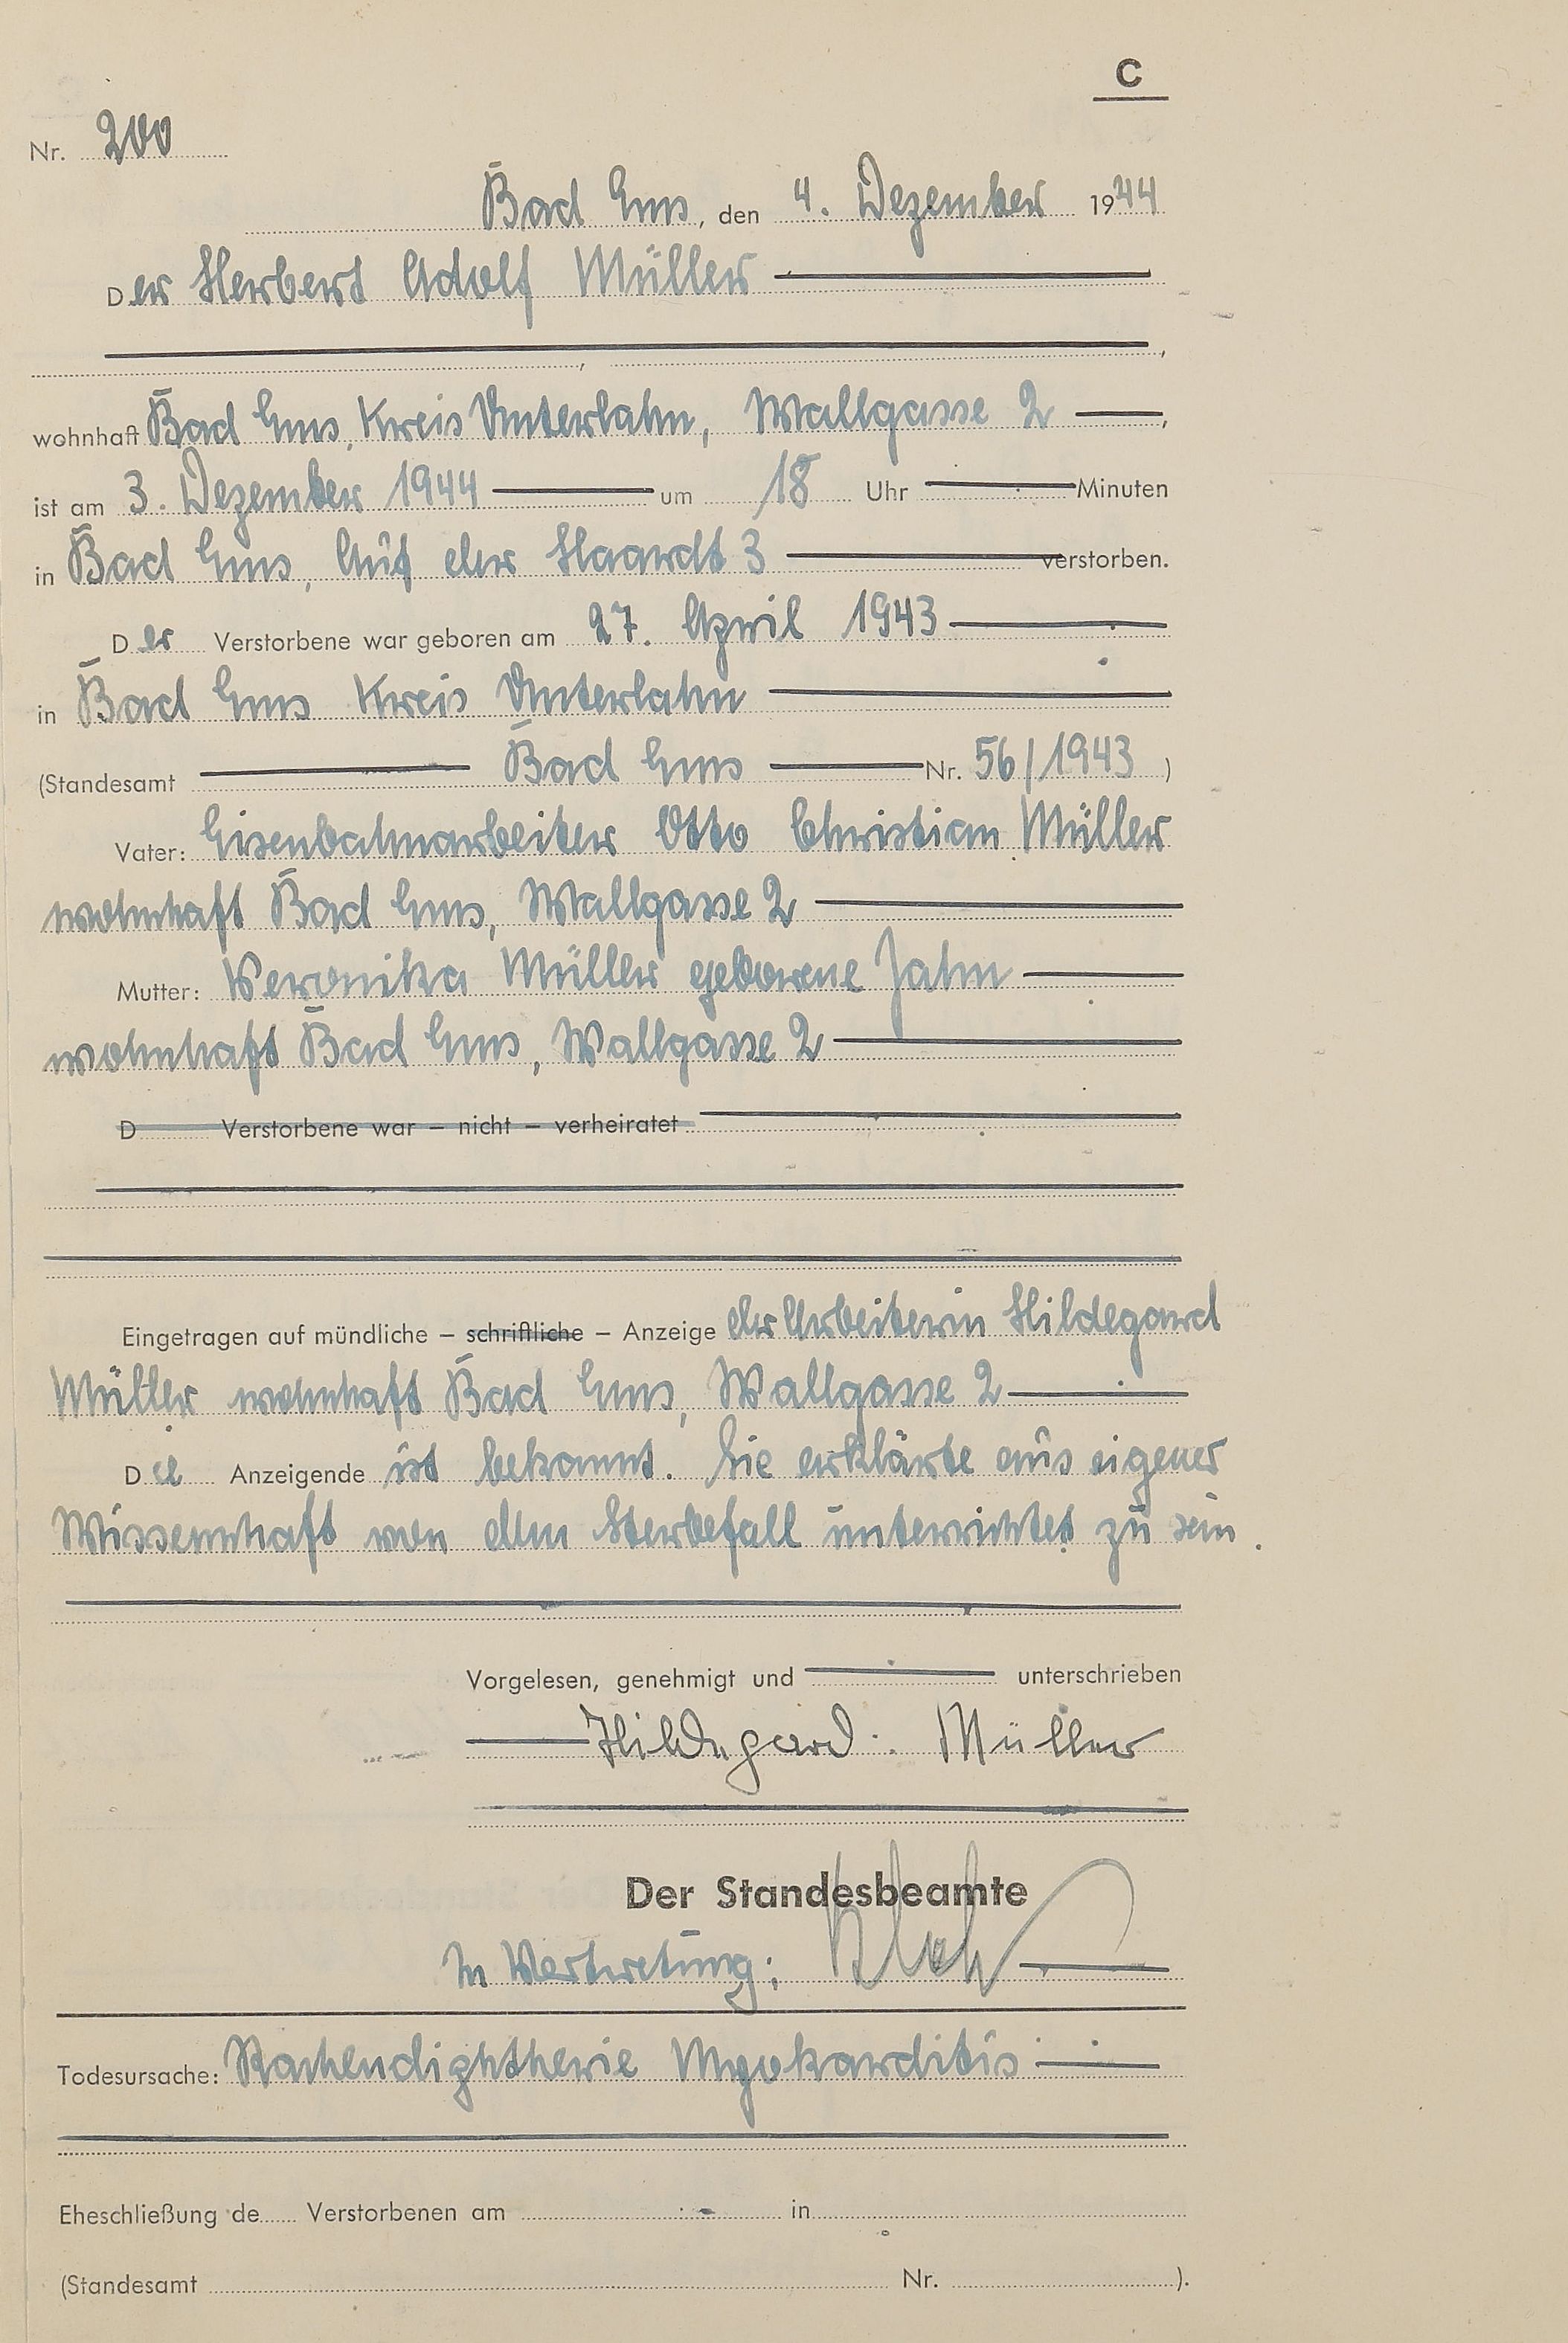 C
Nr. 200
Bad Ems, den 4. Dezember 1944
Der Herbert Adolf Müller
wohnhaft Bad Ems, Kreis Unterlahn, Wallgasse 2
ist am 3. Dezember 1944 um 18 Uhr Minuten
in Bad Ems, Auf der Haardt 3 verstorben.
Der Verstorbene war geboren am 27. April 1943
in Bad Ems Kreis Unterlahn
(Standesamt Bad Ems Nr. 56/1943)
Vater: Eisenbahnarbeiter Otto Christian Müller
wohnhaft Bad Ems, Wallgasse 2
Mutter: Veronika Müller geborene Jahn
wohnhaft Bad Ems, Wallgasse 2
D Verstorbene war – nicht – verheiratet
Eingetragen auf mündliche – schriftliche – Anzeige der Arbeiterin Hildegard
Müller wohnhaft Bad Ems, Wallgasse 2
Die Anzeigende ist bekannt. Sie erklärte aus eigener
Wissenschaft von dem Sterbefall unterrichtet zu sein.
Vorgelesen, genehmigt und unterschrieben
Hildegard Müller
Der Standesbeamte
In Vertretung:
Todesursache: Rachendiphtherie Myokarditis
Eheschließung de Verstorbenen am in
(Standesamt Nr. ).